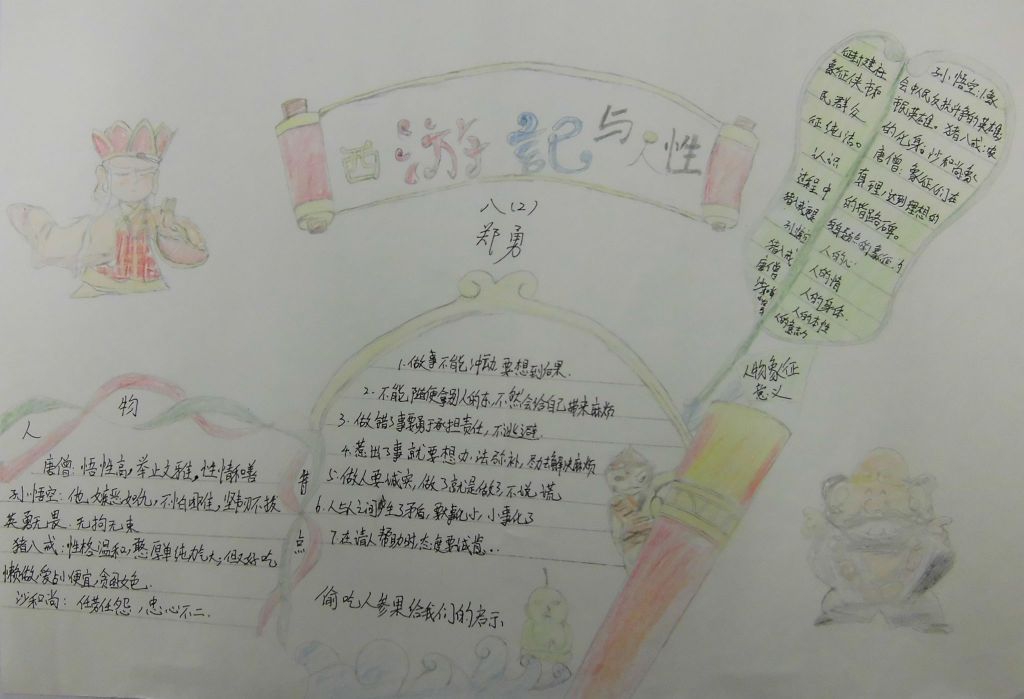 西游記与人性
八(2)
郑勇
人物
特点
唐僧:悟性高,举止文雅,性情和善
孙悟空:他嫉恶如仇,不怕困难,坚韧不拔
英勇无畏.无拘无束
猪八戒:性格温和,憨厚单纯力气大,但又好吃
懒做,爱占小便宜,贪图女色.
沙和尚:任劳任怨,忠心不二.
1.做事不能冲动,要想到后果.
2.不能随便拿别人的东,不然会给自己带来麻烦
3.做错了事要勇于承担责任,不逃避.
4.惹出了事就要想办法弥补,尽力去解决麻烦
5.做人要诚实,做了就是做了,不说谎
6.人与人之间产生了矛盾,大事化小,小事化了
7.在请人帮助时态度要诚恳..
偷吃人参果给我们的启示
象征
民群众
征纯洁。
认识
过程中
猪八戒
唐僧
孙悟空:象
会中人民反抗斗争的英雄
猪八戒:农
的化身。沙和尚象
唐僧:象征人们在
真理,达到理想的
的指路碑。
人的心
人的情
人的身体.
人的本性
人物象征
意义